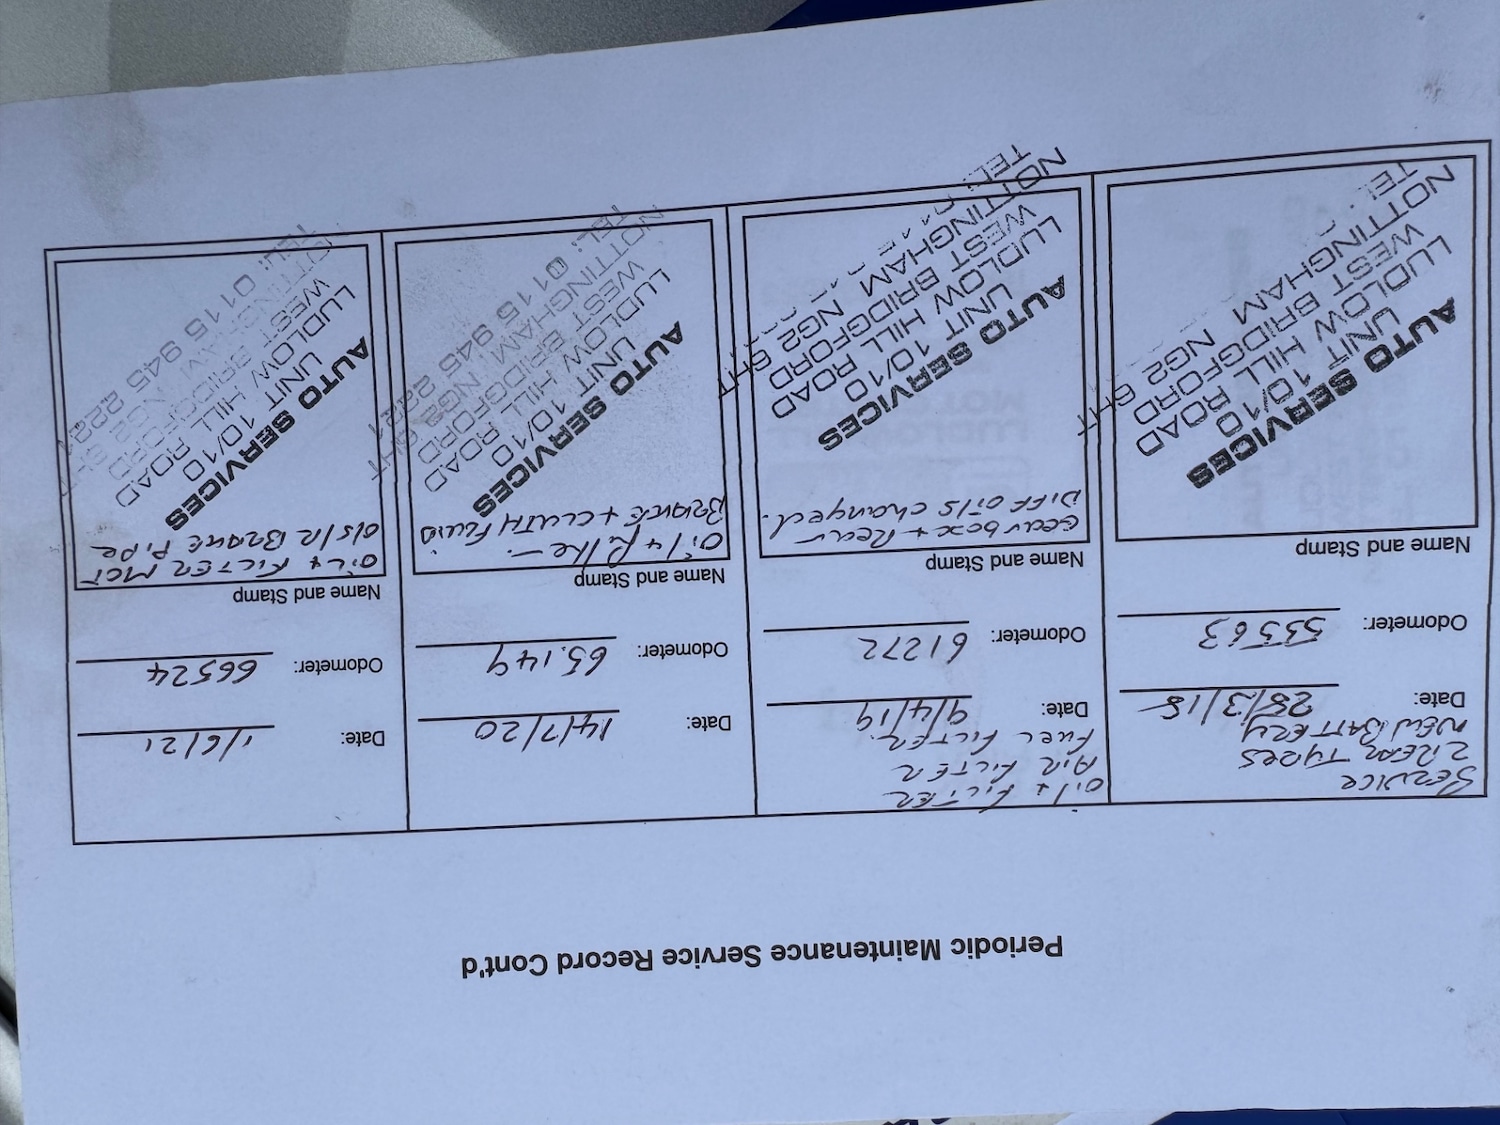 Periodic Maintenance Service Record Cont'd
SERVICE
2 REAR TYRES
NEW BATTERY
Date: 28/3/18
Odometer: 53563
Name and Stamp
AUTO SERVICES
UNIT 10/10
LUDLOW HILL ROAD
WEST BRIDGFORD
NOTTINGHAM NG2 6HT
TEL:
Oil + FILTER
AIR FILTER
FUEL FILTER.
Date: 9/4/19
Odometer: 61272
Name and Stamp
Gearbox + Rear
DIFF oils changed.
AUTO SERVICES
UNIT 10/10
LUDLOW HILL ROAD
WEST BRIDGFORD
NOTTINGHAM NG2 6HT
TEL:
Date: 14/7/20
Odometer: 65.149
Name and Stamp
Oil +
BRAKE + CLUTH FLUID
AUTO SERVICES
UNIT 10/10
LUDLOW HILL ROAD
WEST BRIDGFORD
NOTTINGHAM NG2 6HT
TEL: 0115 945 2221
Date: 1/6/21
Odometer: 66524
Name and Stamp
OIL + FILTER MOT
O/S/R BRAKE PIPE
AUTO SERVICES
UNIT 10/10
LUDLOW HILL ROAD
WEST BRIDGFORD
NOTTINGHAM NG2 6HT
TEL: 0115 945 2221